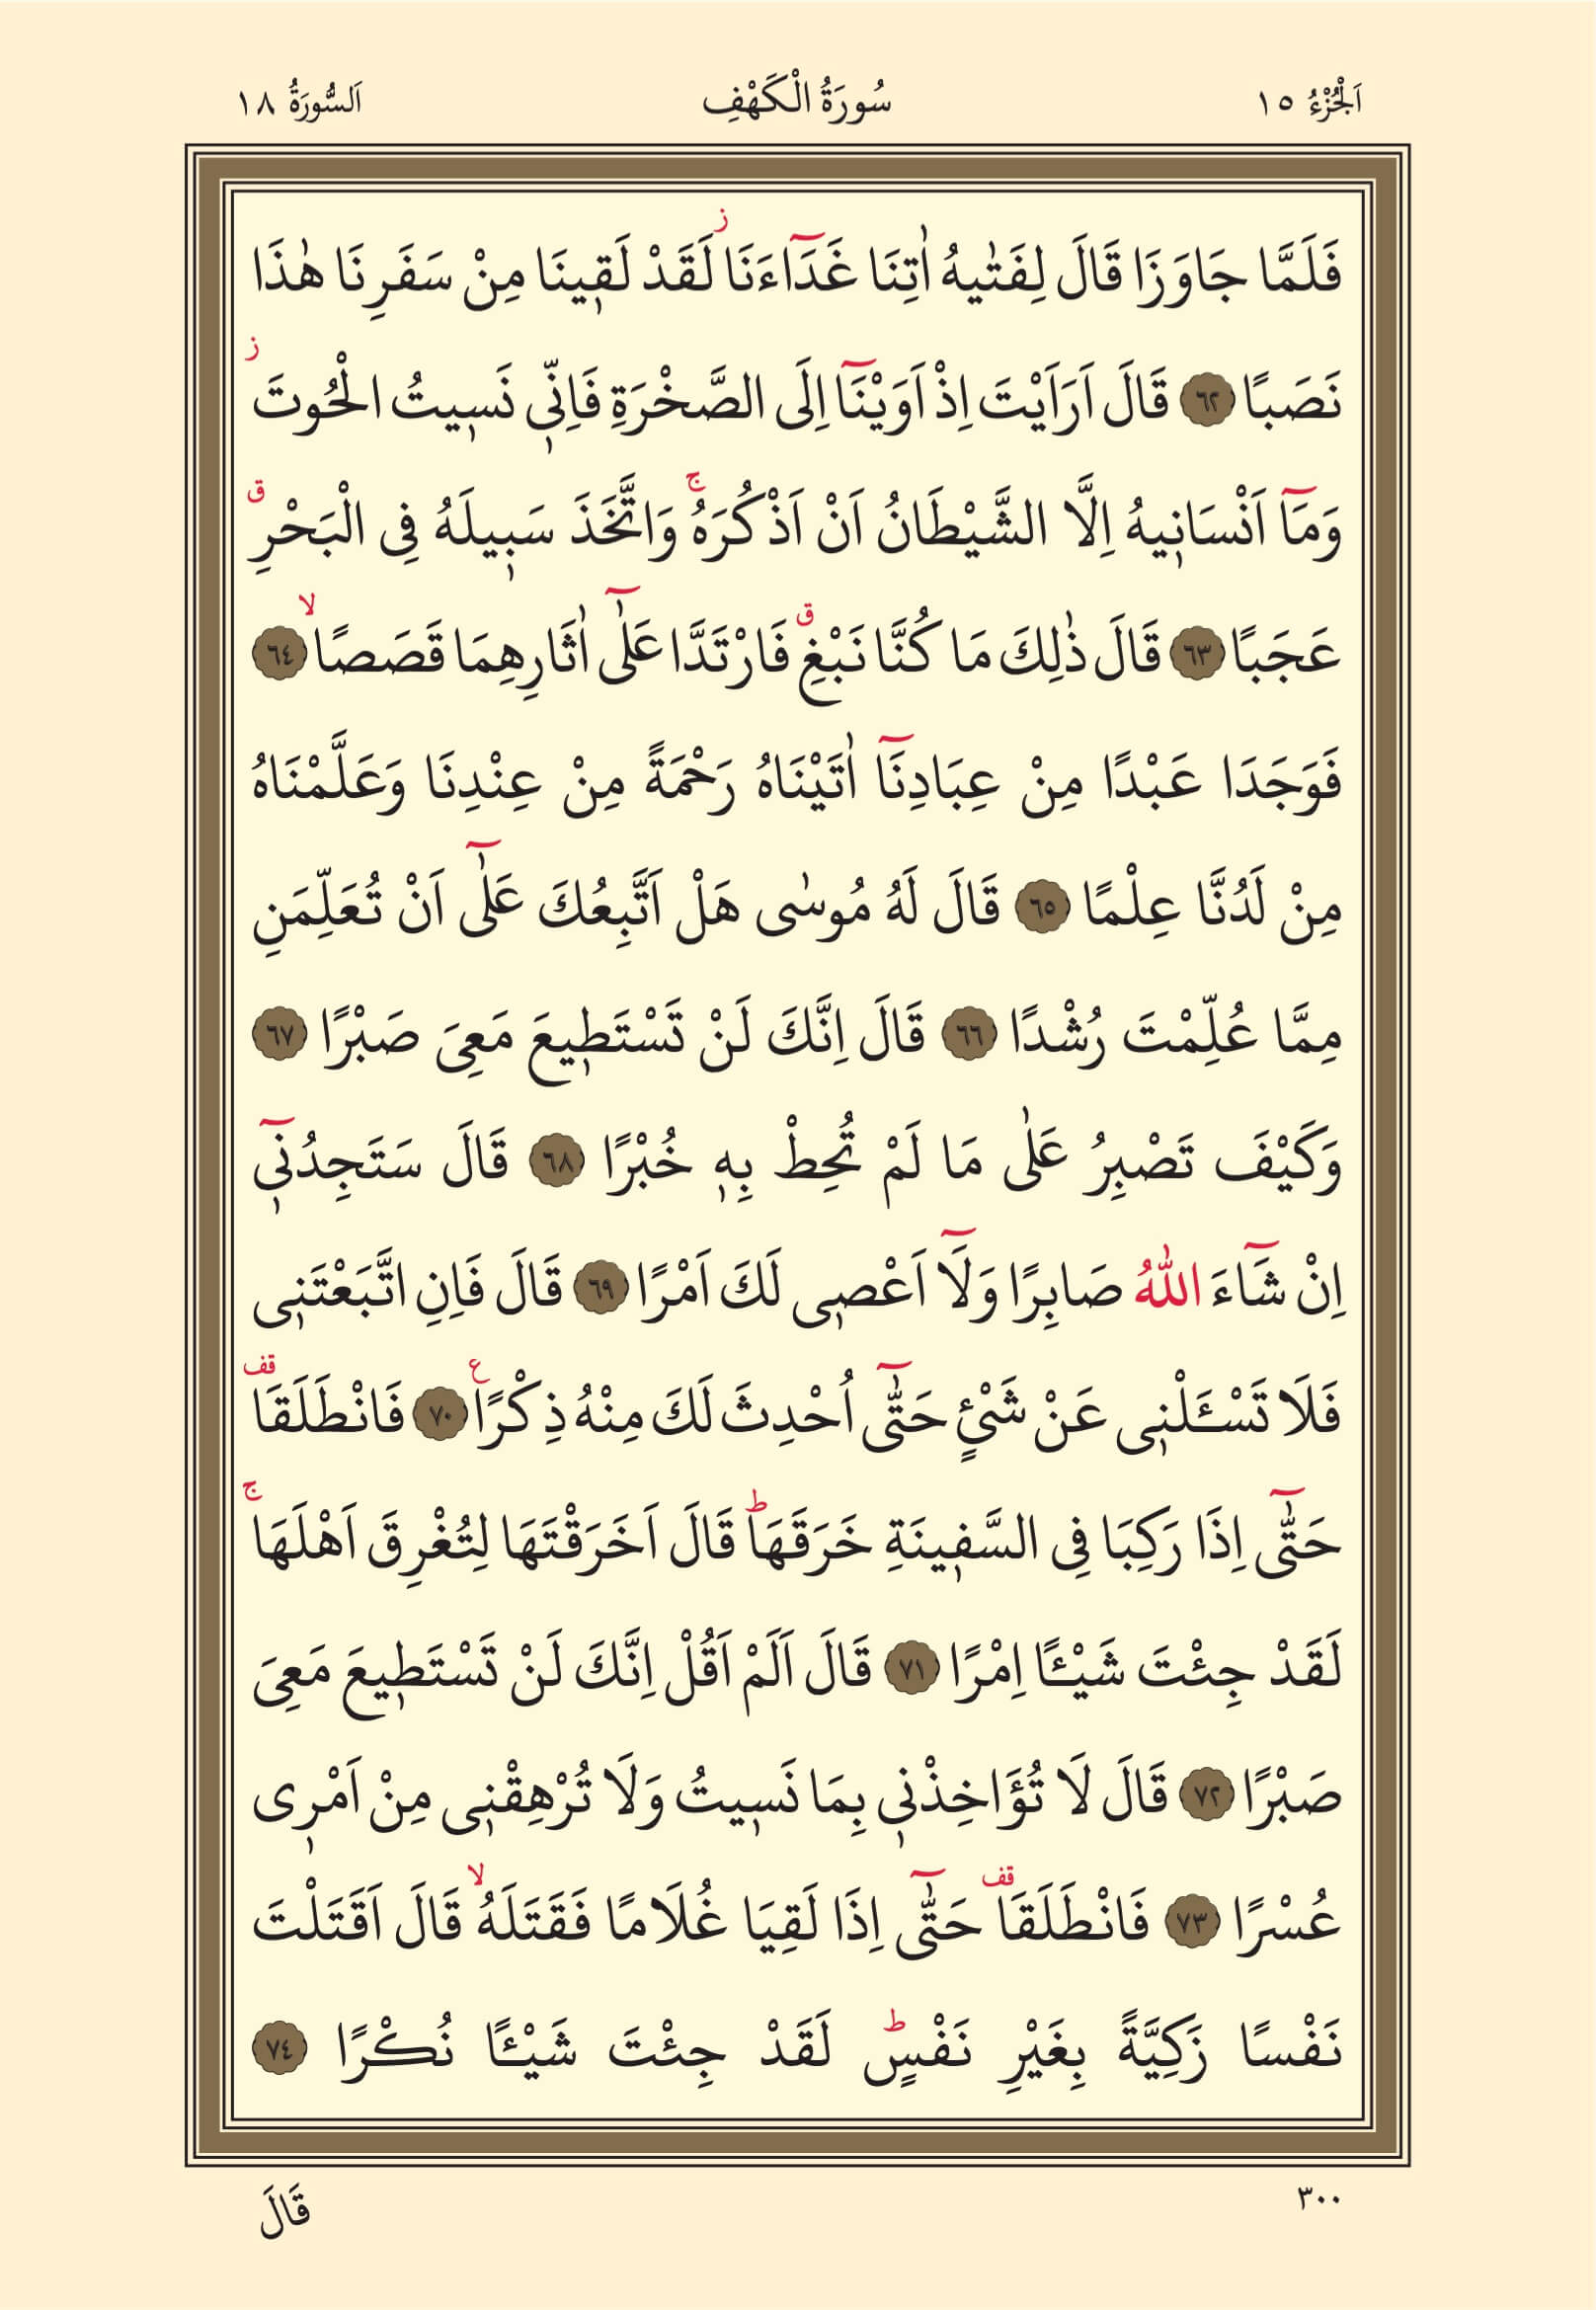 اَلْجُزْءُ ١٥
سُورَةُ الْكَهْفِ
اَلسُّورَةُ ١٨
فَلَمَّا جَاوَزَا قَالَ لِفَتٰيهُ اٰتِنَا غَدَٓاءَنَاۘ لَقَدْ لَقٖينَا مِنْ سَفَرِنَا هٰذَا
نَصَبًا ﴿٦٢﴾ قَالَ اَرَاَيْتَ اِذْ اَوَيْنَٓا اِلَى الصَّخْرَةِ فَاِنّٖى نَسٖيتُ الْحُوتَ ز
وَمَٓا اَنْسَانٖيهُ اِلَّا الشَّيْطَانُ اَنْ اَذْكُرَهُۚ وَاتَّخَذَ سَبٖيلَهُ فِى الْبَحْرِ ق
عَجَبًا ﴿٦٣﴾ قَالَ ذٰلِكَ مَا كُنَّا نَبْغِ ق فَارْتَدَّا عَلٰٓى اٰثَارِهِمَا قَصَصًاۙ ﴿٦٤﴾
فَوَجَدَا عَبْدًا مِنْ عِبَادِنَٓا اٰتَيْنَاهُ رَحْمَةً مِنْ عِنْدِنَا وَعَلَّمْنَاهُ
مِنْ لَدُنَّا عِلْمًا ﴿٦٥﴾ قَالَ لَهُ مُوسٰى هَلْ اَتَّبِعُكَ عَلٰٓى اَنْ تُعَلِّمَنِ
مِمَّا عُلِّمْتَ رُشْدًا ﴿٦٦﴾ قَالَ اِنَّكَ لَنْ تَسْتَطٖيعَ مَعِىَ صَبْرًا ﴿٦٧﴾
وَكَيْفَ تَصْبِرُ عَلٰى مَا لَمْ تُحِطْ بِهٖ خُبْرًا ﴿٦٨﴾ قَالَ سَتَجِدُنٖٓى
اِنْ شَٓاءَ اللّٰهُ صَابِرًا وَلَٓا اَعْصٖى لَكَ اَمْرًا ﴿٦٩﴾ قَالَ فَاِنِ اتَّبَعْتَنٖى
فَلَا تَسْـَٔلْنٖى عَنْ شَىْءٍ حَتّٰٓى اُحْدِثَ لَكَ مِنْهُ ذِكْرًا ع ﴿٧٠﴾ فَانْطَلَقَا قف
حَتّٰٓى اِذَا رَكِبَا فِى السَّفٖينَةِ خَرَقَهَا ط قَالَ اَخَرَقْتَهَا لِتُغْرِقَ اَهْلَهَاۚ
لَقَدْ جِئْتَ شَيْـًٔا اِمْرًا ﴿٧١﴾ قَالَ اَلَمْ اَقُلْ اِنَّكَ لَنْ تَسْتَطٖيعَ مَعِىَ
صَبْرًا ﴿٧٢﴾ قَالَ لَا تُؤَاخِذْنٖى بِمَا نَسٖيتُ وَلَا تُرْهِقْنٖى مِنْ اَمْرٖى
عُسْرًا ﴿٧٣﴾ فَانْطَلَقَا قف حَتّٰٓى اِذَا لَقِيَا غُلَامًا فَقَتَلَهُۙ قَالَ اَقَتَلْتَ
نَفْسًا زَكِيَّةً بِغَيْرِ نَفْسٍ ط لَقَدْ جِئْتَ شَيْـًٔا نُكْرًا ﴿٧٤﴾
٣٠٠
قَالَ